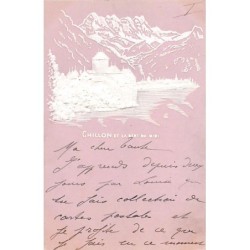 I
CHILLON ET LA DENT DU MIDI
Ma chère
J'apprends depuis
jours par que
tu fais collection de
cartes postales et
je profite de ce que
je suis en ce moment